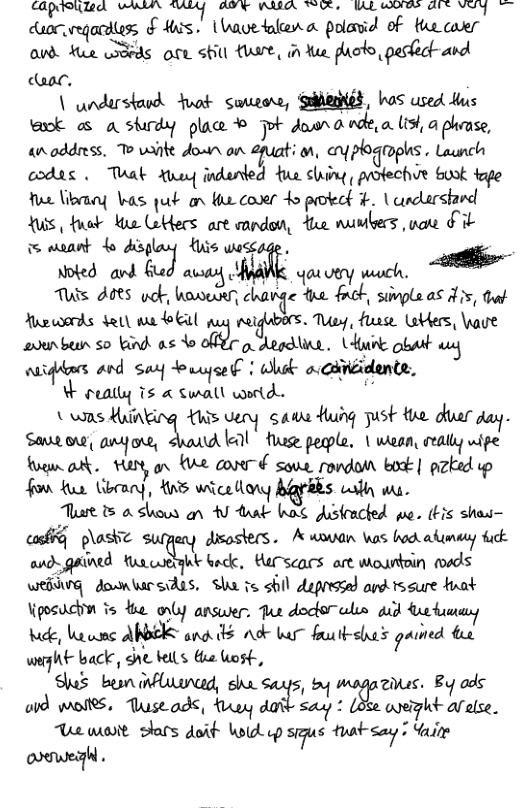 capitalized when they don't need to be. The words are very
clear, regardless of this. I have taken a polaroid of the cover
and the words are still there, in the photo, perfect and
clear.
I understand that someone, someones, has used this
book as a sturdy place to jot down a note, a list, a phrase,
an address. To write down an equation, cryptographs. Launch
codes. That they indented the shiny, protective book tape
the library has put on the cover to protect it. I understand
this, that the letters are random, the numbers, none of it
is meant to display this message.
Noted and filed away, thank you very much.
This does not, however, change the fact, simple as it is, that
the words tell me to kill my neighbors. They, these letters, have
even been so kind as to offer a deadline. I think about my
neighbors and say to myself: what a coincidence.
It really is a small world.
I was thinking this very same thing just the other day.
Someone, anyone, should kill these people. I mean, really wipe
them out. Here, on the cover of some random book I picked up
from the library, this micellony agrees with me.
There is a show on TV that has distracted me. It is show-
casing plastic surgery disasters. A woman has had a tummy tuck
and gained the weight back. Her scars are mountain roads
weaving down her sides. She is still depressed and is sure that
liposuction is the only answer. The doctor who did the tummy
tuck, he was a hack and it's not her fault she's gained the
weight back, she tells the host.
She's been influenced, she says, by magazines. By ads
and movies. These ads, they don't say: Lose weight or else.
The movie stars don't hold up signs that say: You're
overweight.